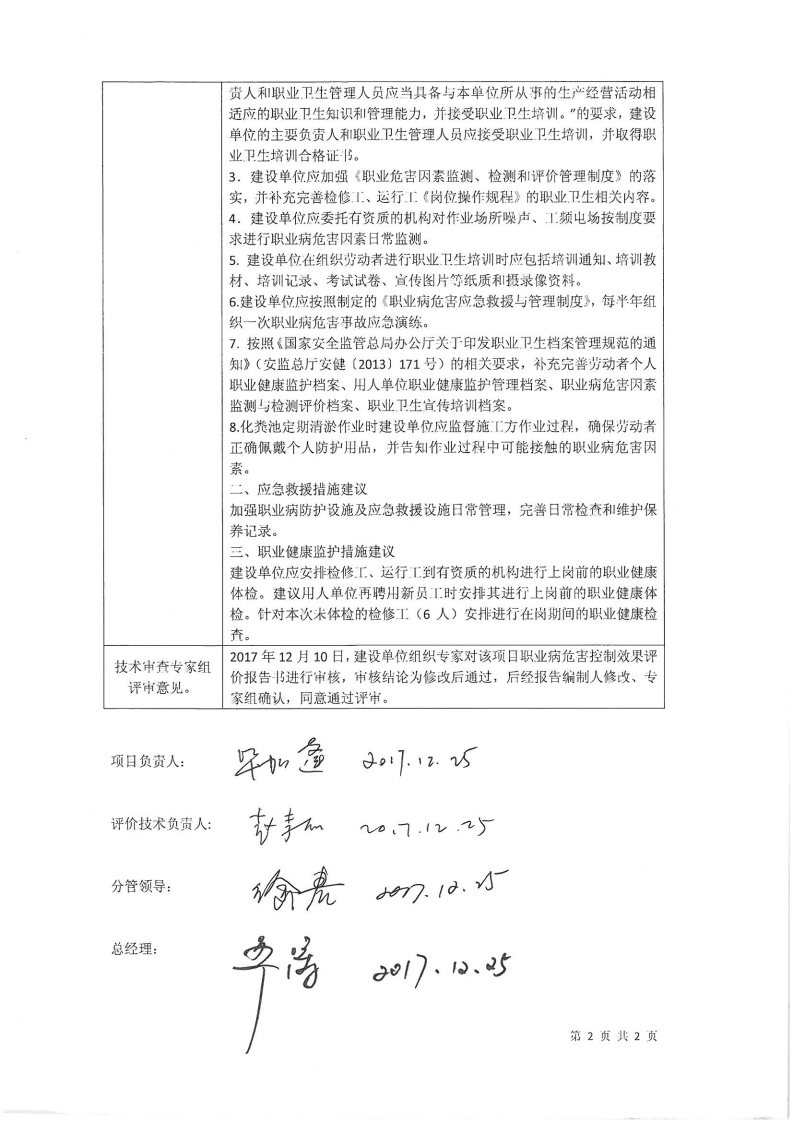 责人和职业卫生管理人员应当具备与本单位所从事的生产经营活动相
适应的职业卫生知识和管理能力，并接受职业卫生培训。”的要求，建设
单位的主要负责人和职业卫生管理人员应接受职业卫生培训，并取得职
业卫生培训合格证书。
3．建设单位应加强《职业危害因素监测、检测和评价管理制度》的落
实，并补充完善检修工、运行工《岗位操作规程》的职业卫生相关内容。
4．建设单位应委托有资质的机构对作业场所噪声、工频电场按制度要
求进行职业病危害因素日常监测。
5. 建设单位在组织劳动者进行职业卫生培训时应包括培训通知、培训教
材、培训记录、考试试卷、宣传图片等纸质和摄录像资料。
6.建设单位应按照制定的《职业病危害应急救援与管理制度》，每半年组
织一次职业病危害事故应急演练。
7. 按照《国家安全监管总局办公厅关于印发职业卫生档案管理规范的通
知》（安监总厅安健〔2013〕171 号）的相关要求，补充完善劳动者个人
职业健康监护档案、用人单位职业健康监护管理档案、职业病危害因素
监测与检测评价档案、职业卫生宣传培训档案。
8.化粪池定期清淤作业时建设单位应监督施工方作业过程，确保劳动者
正确佩戴个人防护用品，并告知作业过程中可能接触的职业病危害因
素。
二、应急救援措施建议
加强职业病防护设施及应急救援设施日常管理，完善日常检查和维护保
养记录。
三、职业健康监护措施建议
建设单位应安排检修工、运行工到有资质的机构进行上岗前的职业健康
体检。建议用人单位再聘用新员工时安排其进行上岗前的职业健康体
检。针对本次未体检的检修工（6 人）安排进行在岗期间的职业健康检
查。
技术审查专家组
评审意见。
2017 年 12 月 10 日，建设单位组织专家对该项目职业病危害控制效果评
价报告书进行审核，审核结论为修改后通过，后经报告编制人修改、专
家组确认，同意通过评审。
项目负责人： 2017.12.25
评价技术负责人: 2017.12.25
分管领导： 2017.12.25
总经理： 2017.12.25
第 2 页 共 2 页